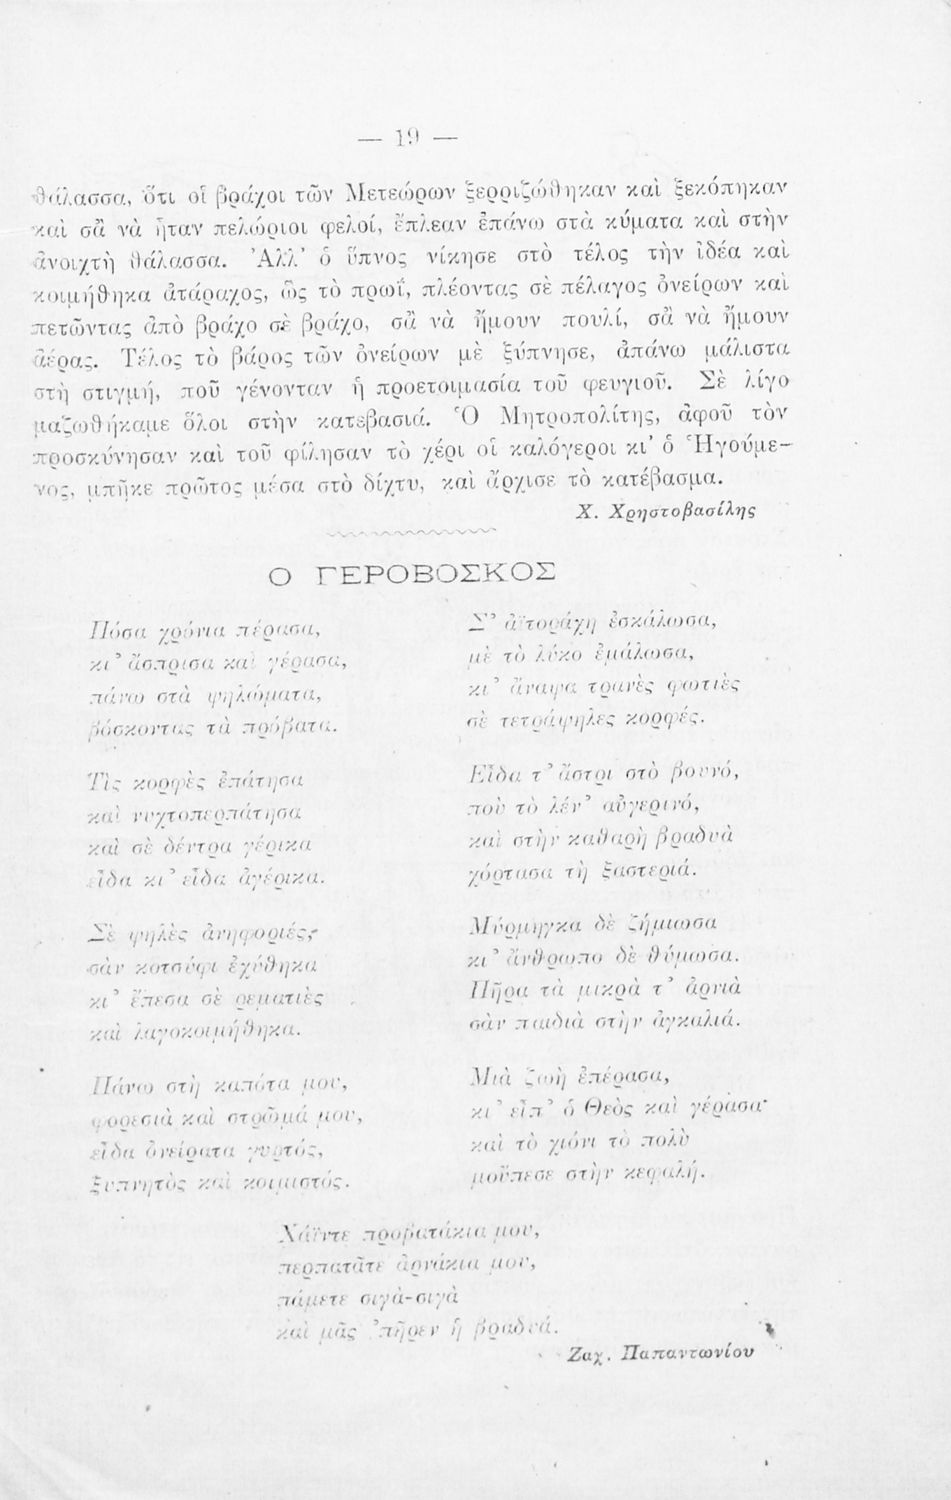 — 19 —
θάλασσα, ὅτι οἱ βράχοι τῶν Μετεώρων ξερριζώθηκαν καὶ ξεκόπηκαν
καὶ σἂ νὰ ἦταν πελώριοι φελοί, ἔπλεαν ἐπάνω στὰ κύματα καὶ στὴν
ἀνοιχτὴ θάλασσα. Ἀλλ' ὁ ὕπνος νίκησε στὸ τέλος τὴν ἰδέα καὶ
κοιμήθηκα ἀτάραχος, ὣς τὸ πρωΐ, πλέοντας σὲ πέλαγος ὀνείρων καὶ
πετῶντας ἀπὸ βράχο σὲ βράχο, σἂ νὰ ἤμουν πουλί, σἂ νὰ ἤμουν
ἀέρας. Τέλος τὸ βάρος τῶν ὀνείρων μὲ ξύπνησε, ἀπάνω μάλιστα
στὴ στιγμή, ποῦ γένονταν ἡ προετοιμασία τοῦ φευγιοῦ. Σὲ λίγο
μαζωθήκαμε ὅλοι στὴν κατεβασιά. Ὁ Μητροπολίτης, ἀφοῦ τὸν
προσκύνησαν καὶ τοῦ φίλησαν τὸ χέρι οἱ καλόγεροι κι' ὁ Ἡγούμε-
νος, μπῆκε πρῶτος μέσα στὸ δίχτυ, καὶ ἄρχισε τὸ κατέβασμα.
Χ. Χρηστοβασίλης
Ο ΓΕΡΟΒΟΣΚΟΣ
Πόσα χρόνια πέρασα,
κι' ἄσπρισα καὶ γέρασα,
πάνω στὰ ψηλώματα,
βόσκοντας τὰ πρόβατα.
Τὶς κορφὲς ἐπάτησα
καὶ νυχτοπερπάτησα
καὶ σὲ δέντρα γέρικα
εἶδα κι' εἶδα ἀγέρικα.
Σὲ ψηλὲς ἀνηφοριές,
σὰν κοτσύφι ἐχύθηκα
κι' ἔπεσα σὲ ρεματιὲς
καὶ λαγοκοιμήθηκα.
Πάνω στὴ καπότα μου,
φορεσιὰ καὶ στρῶμά μου,
εἶδα ὀνείρατα γυρτός,
ξυπνητὸς καὶ κοιμιστός.
Σ' ἀϊτοράχη ἐσκάλωσα,
μὲ τὸ λύκο ἐμάλωσα,
κι' ἄναψα τρανὲς φωτιὲς
σὲ τετράψηλες κορφές.
Εἶδα τ' ἄστρι στὸ βουνό,
ποὺ τὸ λέν' αὐγερινό,
καὶ στὴν καθαρὴ βραδυὰ
χόρτασα τὴ ξαστεριά.
Μύρμηγκα δὲ ζήμιωσα
κι' ἄνθρωπο δὲ θύμωσα.
Πῆρα τὰ μικρὰ τ' ἀρνιὰ
σὰν παιδιὰ στὴν ἀγκαλιά.
Μιὰ ζωὴ ἐπέρασα,
κι' εἶπ' ὁ Θεὸς καὶ γέρασα·
καὶ τὸ χιόνι τὸ πολὺ
μοὔπεσε στὴν κεφαλή.
Χάϊντε προβατάκια μου,
περπατᾶτε ἀρνάκια μου,
πάμετε σιγὰ-σιγὰ
καὶ μᾶς 'πῆρεν ἡ βραδυά.
Ζαχ. Παπαντωνίου